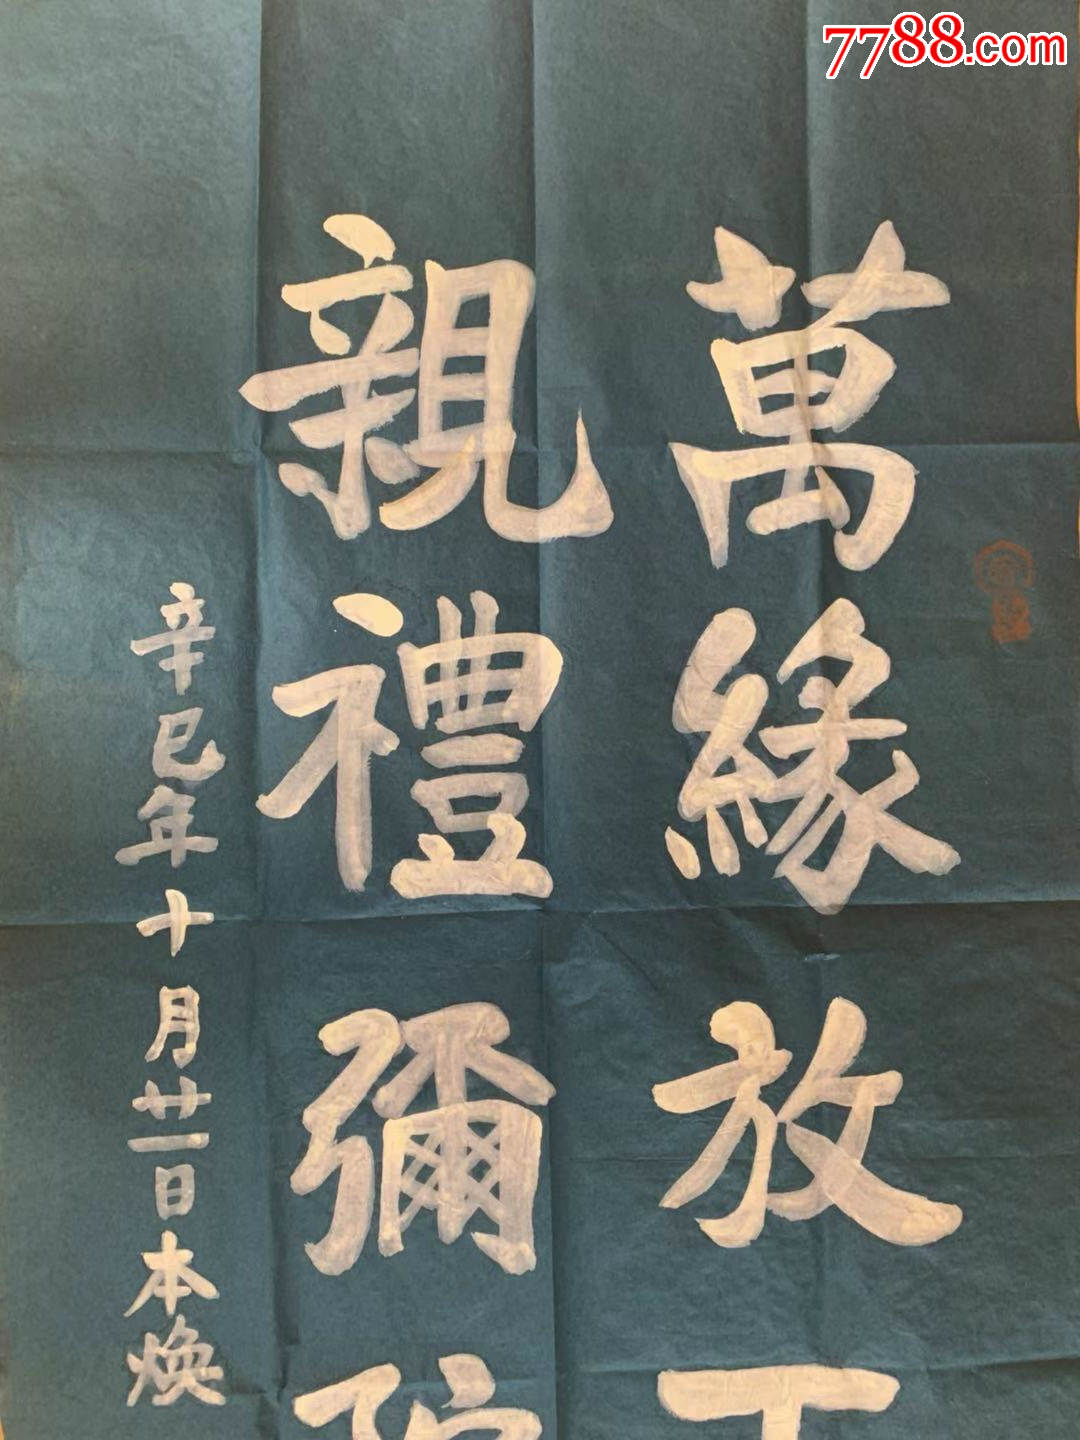 7788.com
萬緣放下
親禮彌陀
辛巳年十月廿一日本煥